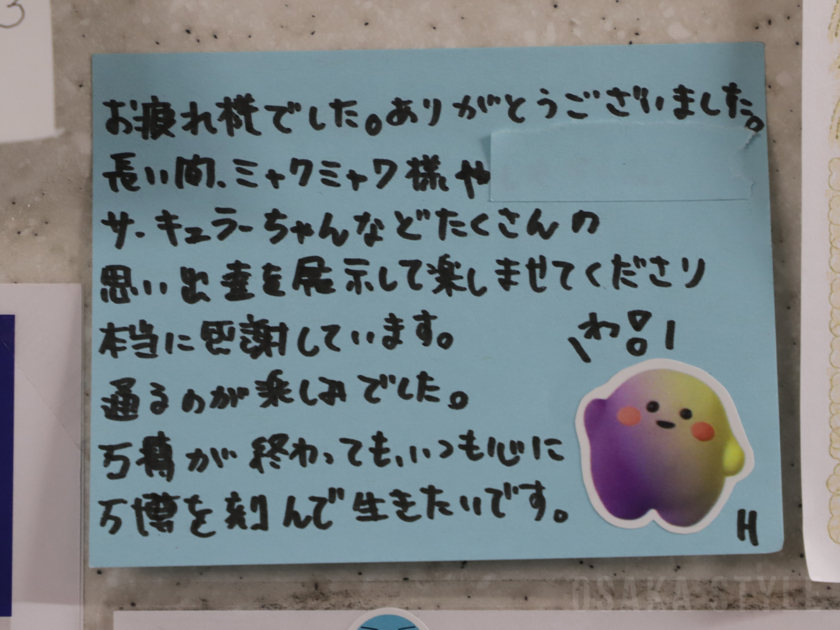 3
お疲れ様でした。ありがとうございました。
長い間、ミャクミャク様や
サーキュラーちゃんなどたくさんの
思い出達を展示して楽しませてくださり
本当に感謝しています。
わ。！
通るのが楽しみでした。
万博が終わっても、いつも心に
万博を刻んで生きたいです。
H
OSAKA STYLE